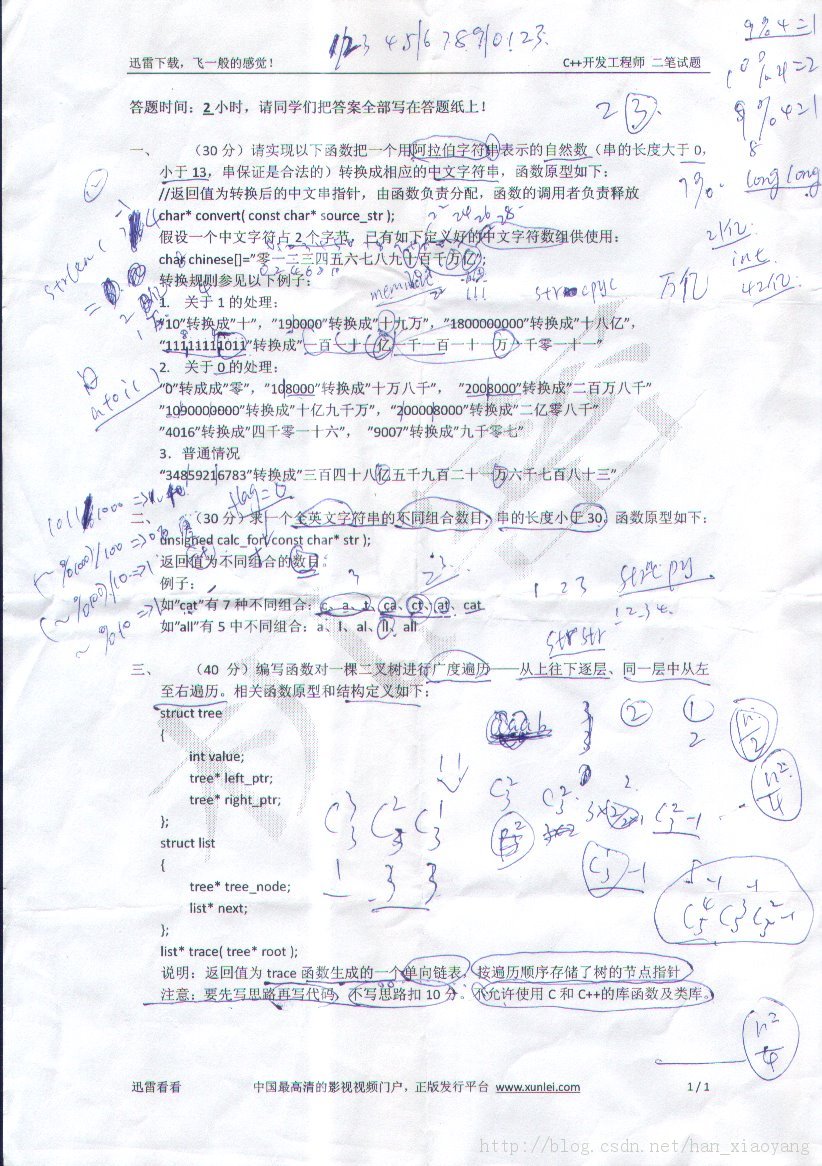 1/23 45/6789/0123
迅雷下载，飞一般的感觉！ C++开发工程师 二笔试题
9%4=1
%4=2
9%4=1
8
答题时间：2小时，请同学们把答案全部写在答题纸上！
2 3
一、 （30 分）请实现以下函数把一个用阿拉伯字符串表示的自然数（串的长度大于 0，
小于 13，串保证是合法的）转换成相应的中文字符串，函数原型如下：
long long
//返回值为转换后的中文串指针，由函数负责分配，函数的调用者负责释放
char* convert( const char* source_str );
假设一个中文字符占 2 个字节，已有如下定义好的中文字符数组供使用：
2亿
char chinese[]=”零一二三四五六七八九十百千万亿;
int
转换规则参见以下例子：
万亿
42亿
strlen(
memset
strcpy
1. 关于 1 的处理：
“10”转换成”十”，”190000”转换成”十九万”，”1800000000”转换成”十八亿”，
“11111111011”转换成”一百一十一亿一千一百一十一万一千零一十一”
2. 关于 0 的处理：
atoi()
“0”转成成”零”，”108000”转换成”十万八千”， ”2008000”转换成”二百万八千”
”1090000000”转换成”十亿九千万”，”200008000”转换成”二亿零八千”
”4016”转换成”四千零一十六”， ”9007”转换成”九千零七”
3．普通情况
“34859216783”转换成”三百四十八亿五千九百二十一万六千七百八十三”
flag=0
二、 （30 分）求一个全英文字符串的不同组合数目，串的长度小于 30。函数原型如下：
unsigned calc_for( const char* str );
返回值为不同组合的数目。
例子：
1 2 3
strcpy
1 2 3 4
如”cat”有 7 种不同组合：c、a、t、ca、ct、at、cat
如”all”有 5 中不同组合：a、l、al、ll、all
strstr
三、 （40 分）编写函数对一棵二叉树进行广度遍历——从上往下逐层、同一层中从左
至右遍历。相关函数原型和结构定义如下：
struct tree
{
int value;
tree* left_ptr;
tree* right_ptr;
};
struct list
{
tree* tree_node;
list* next;
};
list* trace( tree* root );
说明：返回值为 trace 函数生成的一个单向链表，按遍历顺序存储了树的节点指针
注意：要先写思路再写代码，不写思路扣 10 分。不允许使用 C 和 C++的库函数及类库。
n²/4
迅雷看看 中国最高清的影视视频门户，正版发行平台 www.xunlei.com 1 / 1
http://blog.csdn.net/han_xiaoyang